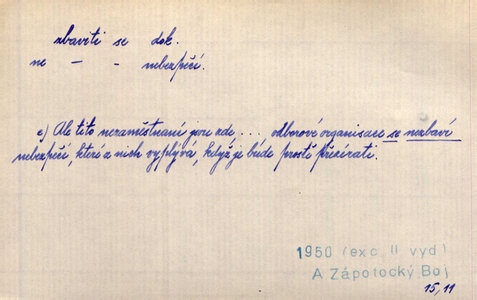 zbaviti se dok.
ne — - nebezpečí.
e) Ale tito nezaměstnaní jsou zde, ... odborové organisace se nezbaví
nebezpečí, které z nich vyplývá, když je bude prostě přezírati.
1950 (exc. II vyd)
A Zápotocký Boj
15, 11